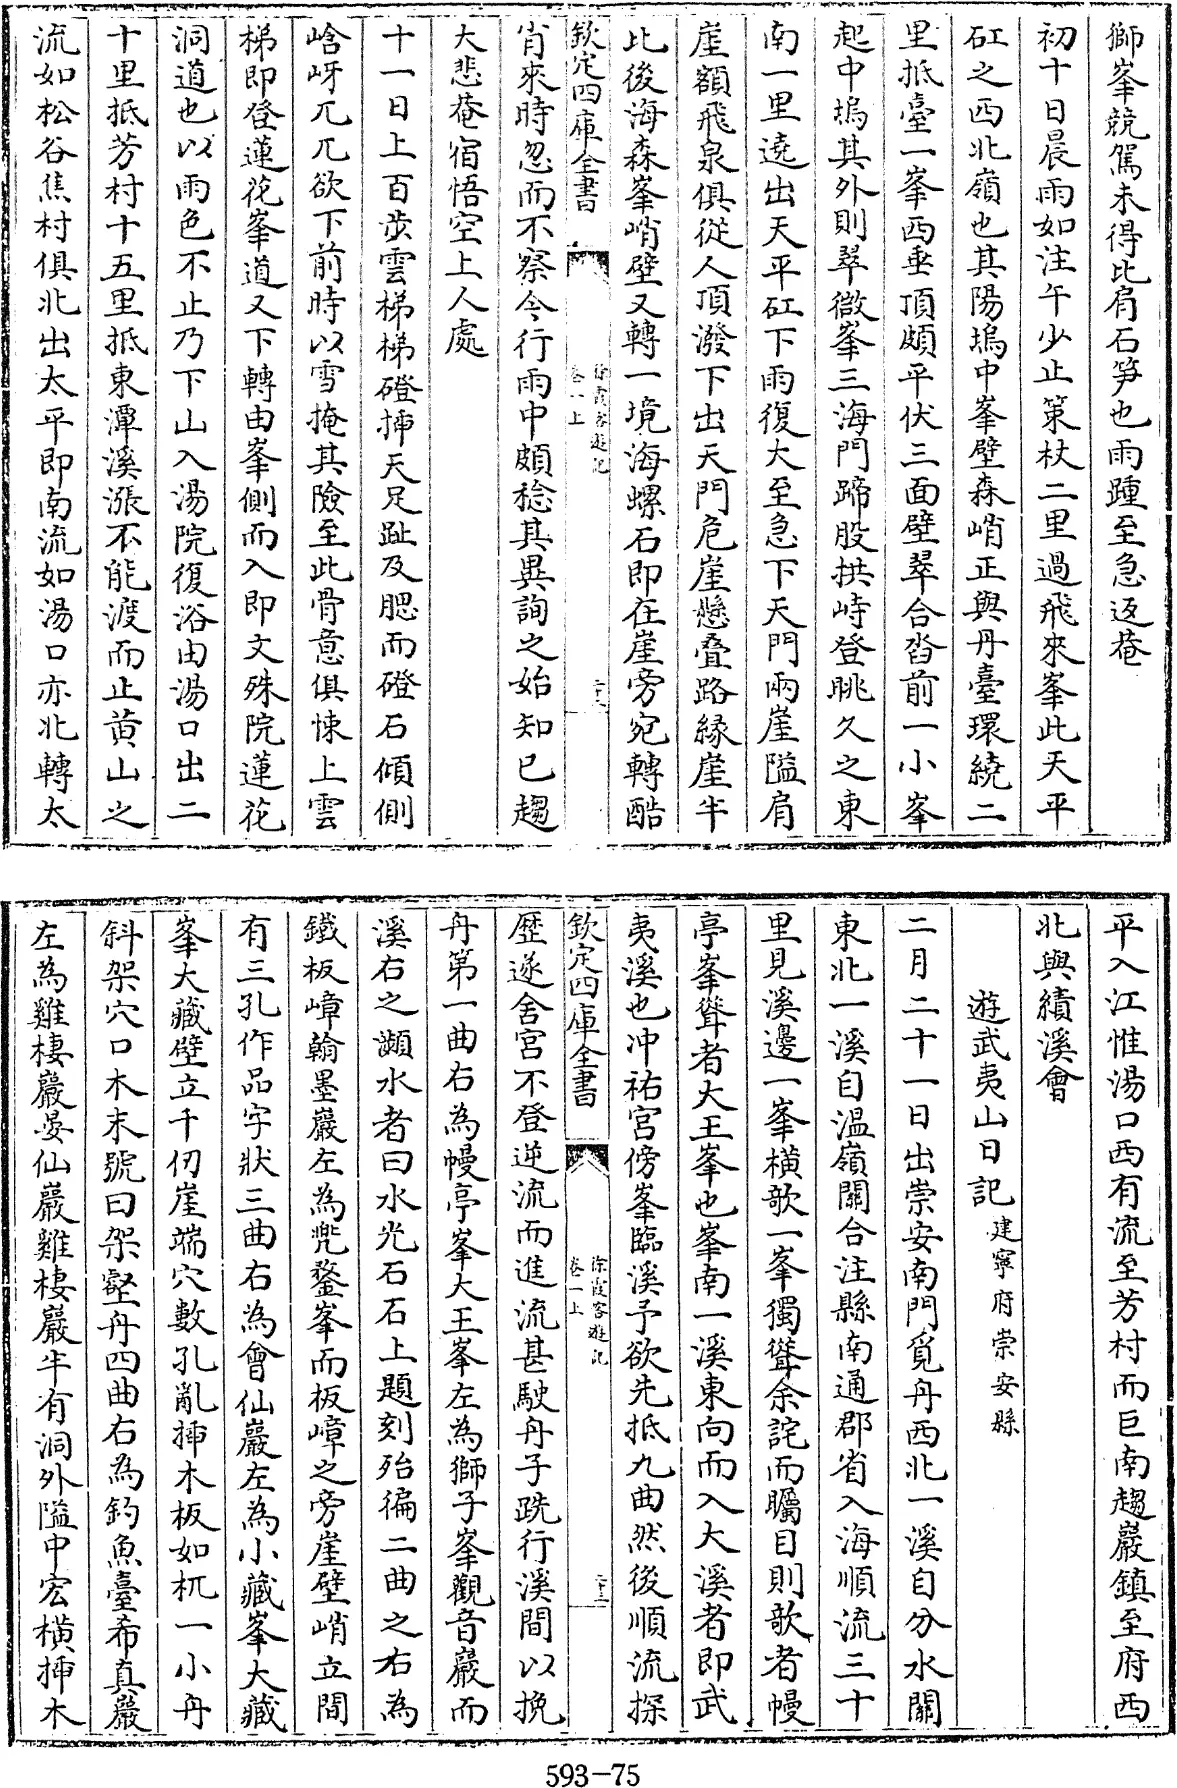 獅峯競駕未得比肩石笋也雨踵至急返菴
初十日晨雨如注午少止策杖二里過飛來峯此天平
矼之西北嶺也其陽塢中峯壁森峭正與丹臺環繞二
里抵臺一峯西垂頂頗平伏三面壁翠合沓前一小峯
起中塢其外則翠微峯三海門蹄股拱峙登眺久之東
南一里遶出天平矼下雨復大至急下天門兩崖隘肩
崖額飛泉俱從人頂潑下出天門危崖懸疊路緣崖半
比後海森峯峭壁又轉一境海螺石即在崖旁宛轉酷
欽定四庫全書
徐霞客遊記
卷一上
肖來時忽而不察今行雨中頗稔其異詢之始知已趨
大悲菴宿悟空上人處
十一日上百步雲梯梯磴揷天足趾及腮而磴石傾側
崡岈兀兀欲下前時以雪掩其險至此骨意俱悚上雲
梯即登蓮花峯道又下轉由峯側而入即文殊院蓮花
洞道也以雨色不止乃下山入湯院復浴由湯口出二
十里抵芳村十五里抵東潭溪漲不能渡而止黄山之
流如松谷焦村俱北出太平即南流如湯口亦北轉太
平入江惟湯口西有流至芳村而巨南趨巖鎮至府西
北與績溪會
遊武夷山日記建寧府崇安縣
二月二十一日出崇安南門覓舟西北一溪自分水關
東北一溪自温嶺關合注縣南通郡省入海順流三十
里見溪邊一峯横欹一峯獨聳余詫而矚目則欹者幔
亭峯聳者大王峯也峯南一溪東向而入大溪者即武
夷溪也冲祐宫傍峯臨溪予欲先抵九曲然後順流探
欽定四庫全書
徐霞客遊記
卷一上
歷遂舍宫不登逆流而進流甚駛舟子跣行溪間以挽
舟第一曲右為幔亭峯大王峯左為獅子峯觀音巖而
溪右之瀕水者曰水光石石上題刻殆徧二曲之右為
鐵板嶂翰墨巖左為兠鍪峯而板嶂之旁崖壁峭立間
有三孔作品字狀三曲右為會仙巖左為小藏峯大藏
峯大藏壁立千仞崖端穴數孔亂揷木板如杌一小舟
斜架穴口木末號曰架壑舟四曲右為釣魚臺希真巖
左為雞棲巖晏仙巖雞棲巖半有洞外隘中宏横揷木
593-75